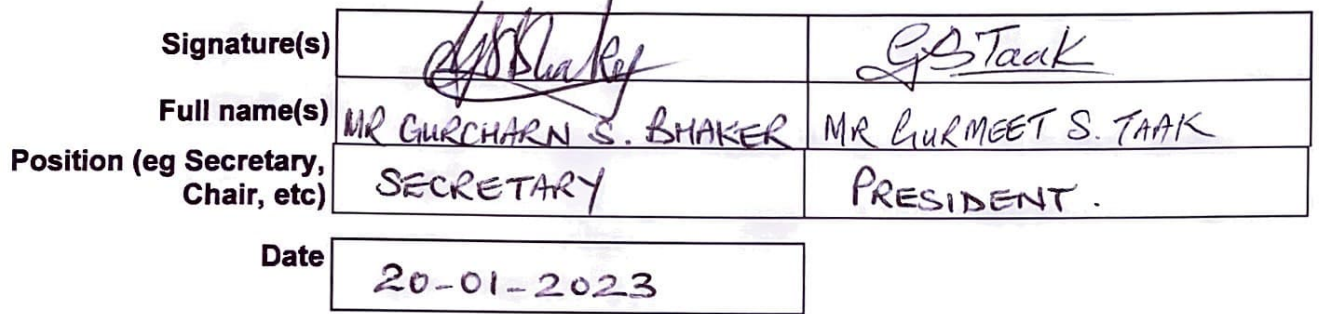 Signature(s) GSBhaker GSTaak
Full name(s) MR GURCHARN S. BHAKER MR GURMEET S. TAAK
Position (eg Secretary, SECRETARY PRESIDENT.
Chair, etc)
Date 20-01-2023